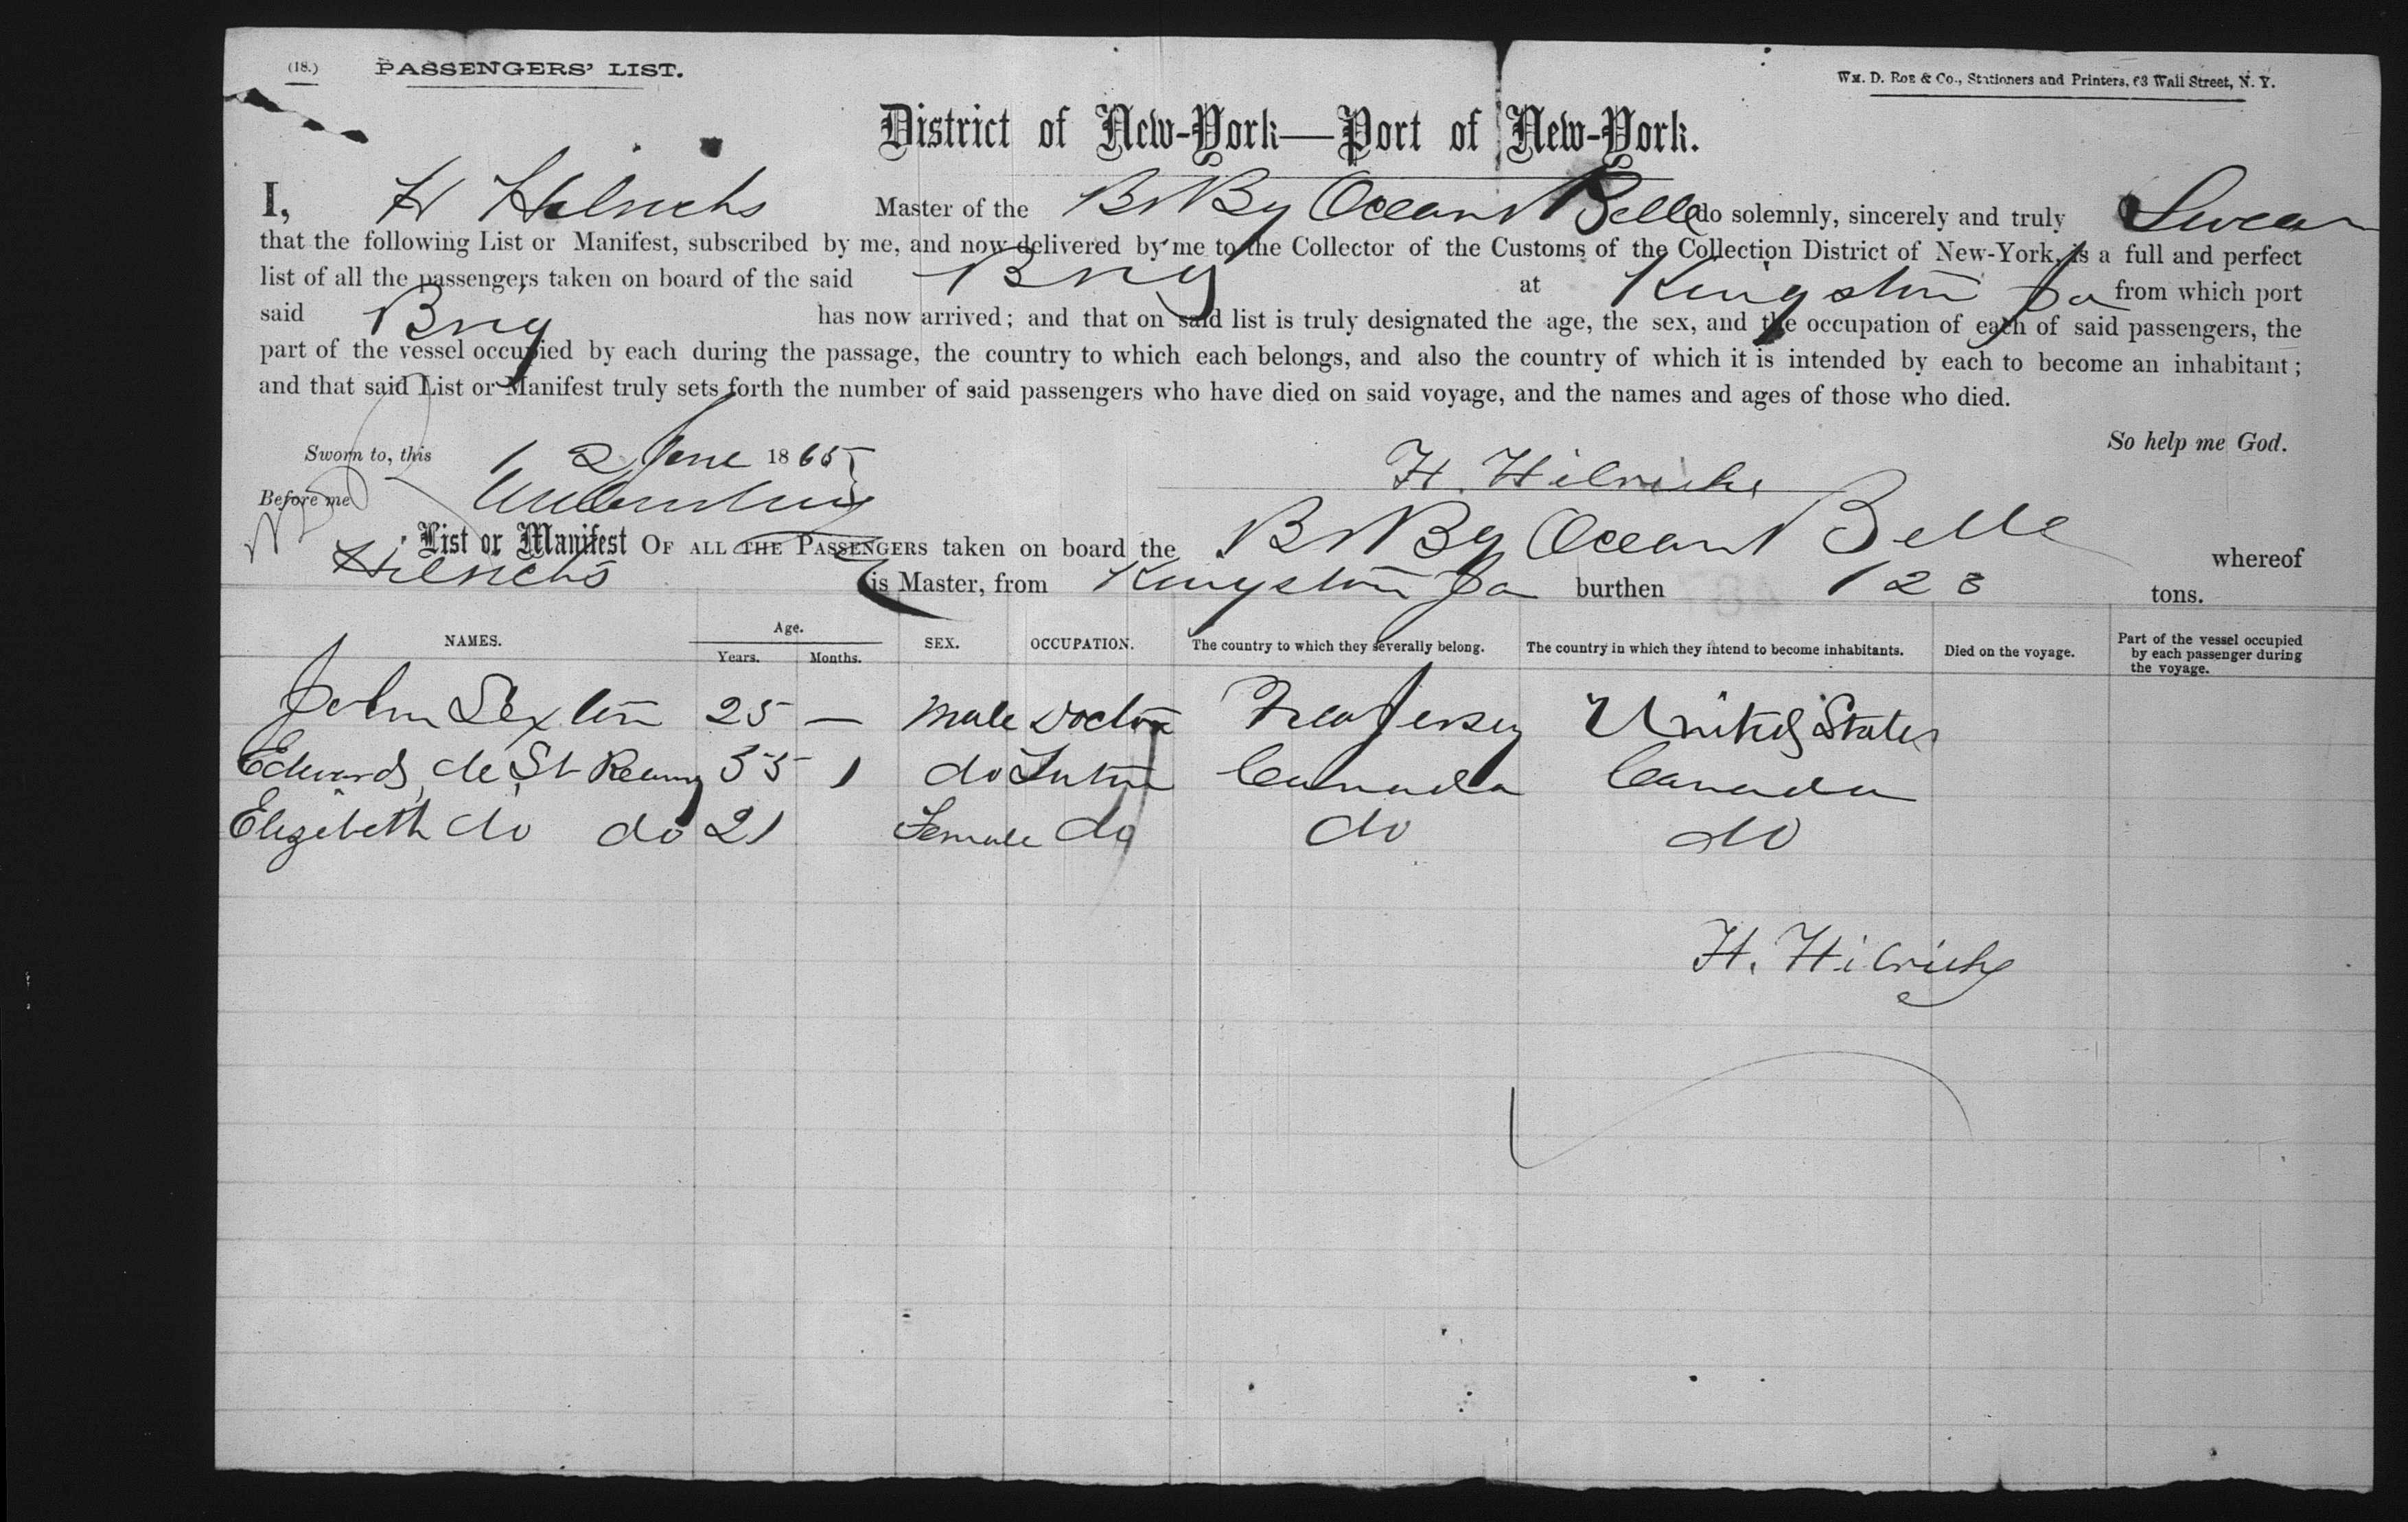 (18.) PASSENGERS' LIST. Wm. D. Roe & Co., Stationers and Printers, 63 Wall Street, N. Y.
District of New-York—Port of New-York.
I, H Hilrichs Master of the Br Bg Ocean Belle do solemnly, sincerely and truly Swear
that the following List or Manifest, subscribed by me, and now delivered by me to the Collector of the Customs of the Collection District of New-York, is a full and perfect
list of all the passengers taken on board of the said Brig at Kingston Ja from which port
said Brig has now arrived; and that on said list is truly designated the age, the sex, and the occupation of each of said passengers, the
part of the vessel occupied by each during the passage, the country to which each belongs, and also the country of which it is intended by each to become an inhabitant;
and that said List or Manifest truly sets forth the number of said passengers who have died on said voyage, and the names and ages of those who died.
So help me God.
Sworn to, this 12 June 1865
H. Hilrichs
Before me
List or Manifest OF ALL THE PASSENGERS taken on board the Br Bg Ocean Belle whereof
Hilrichs is Master, from Kingston Ja burthen 123 tons.
NAMES. Age. Years. Months. SEX. OCCUPATION. The country to which they severally belong. The country in which they intend to become inhabitants. Died on the voyage. Part of the vessel occupied by each passenger during the voyage.
John Sexton 25 — Male Doctor New Jersey United States
Edward de St Remy 35 1 do Tutor Canada Canada
Elizibeth do do 21 Female do do do
H. Hilrichs